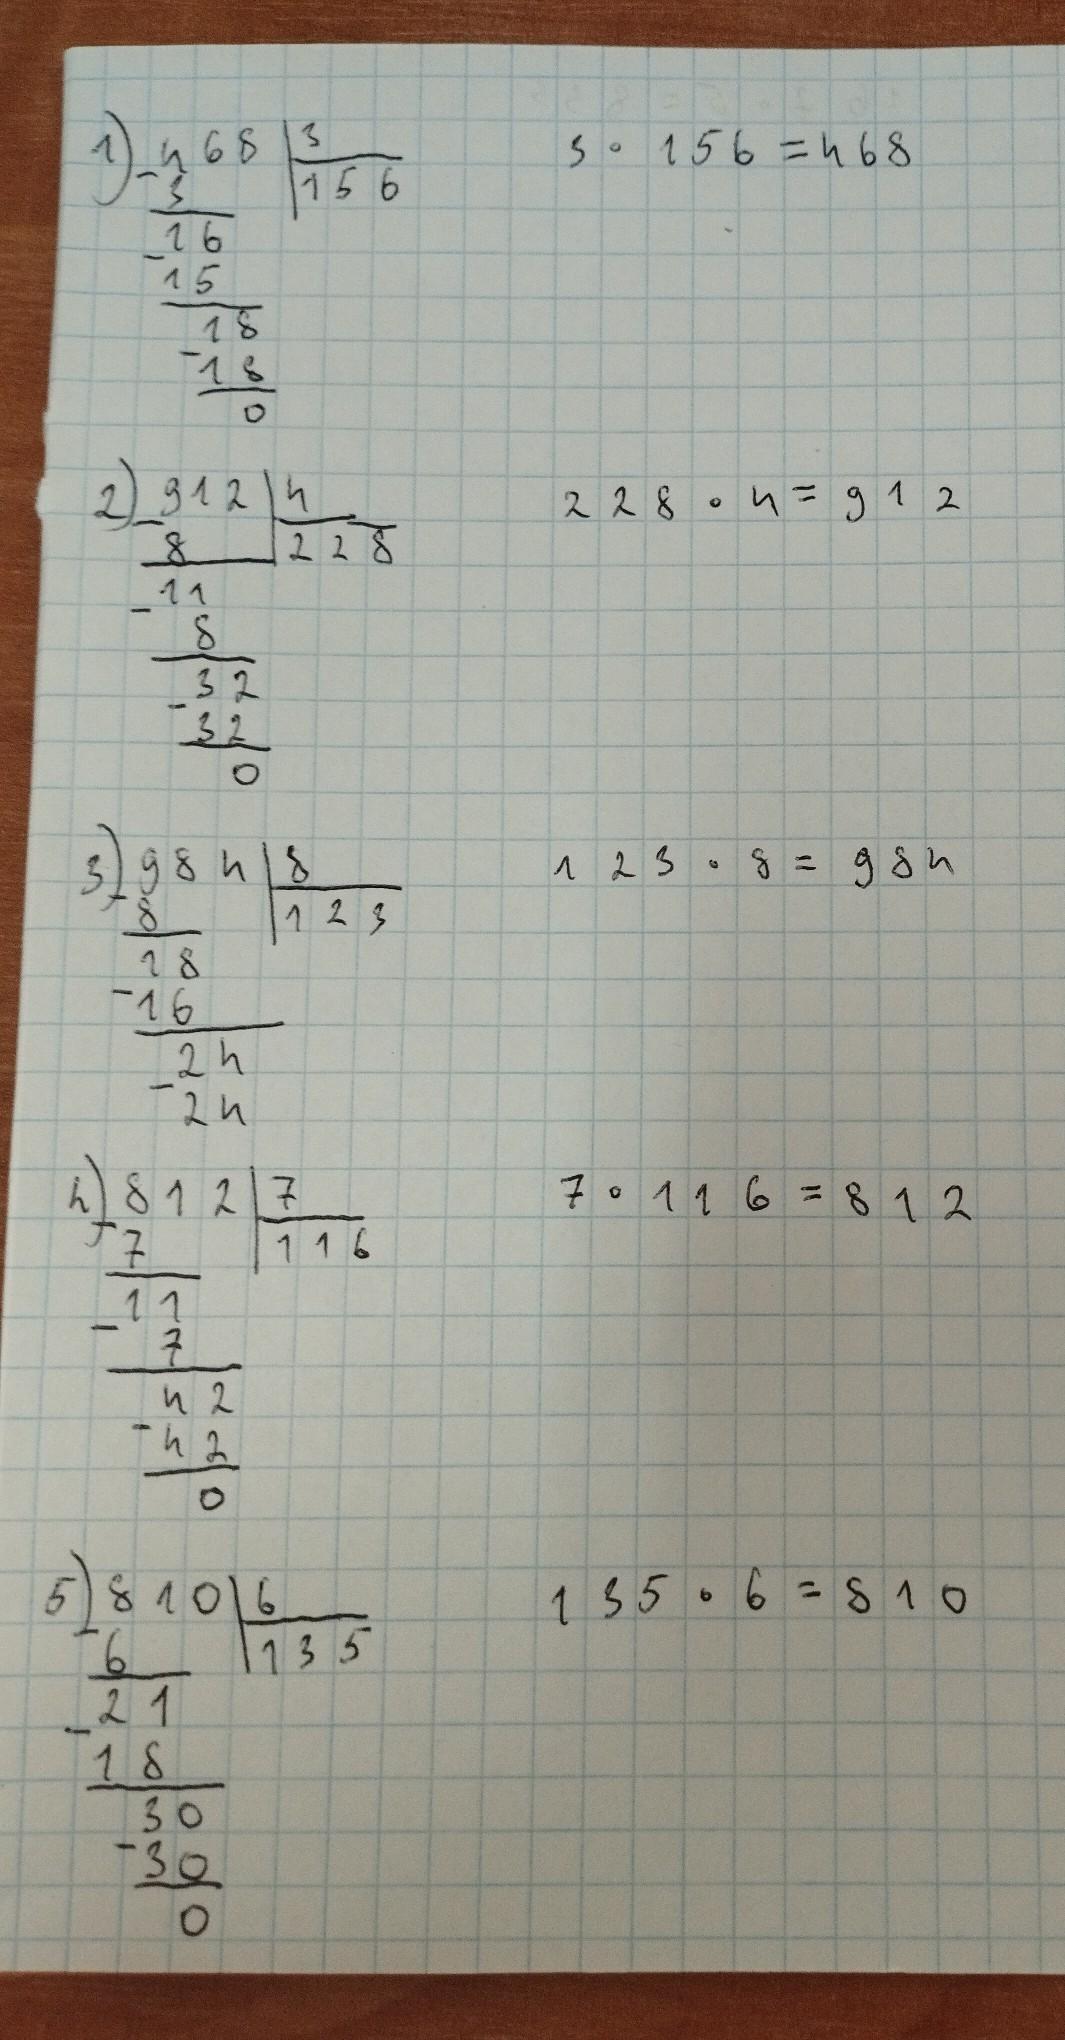 1) 468 | 3      3 · 156 = 468
- 3 | 156
- 16
15
- 18
18
0
2) 912 | 4      228 · 4 = 912
- 8 | 228
- 11
8
- 32
32
0
3) 984 | 8      123 · 8 = 984
- 8 | 123
18
- 16
- 24
24
4) 812 | 7      7 · 116 = 812
- 7 | 116
- 11
7
- 42
42
0
5) 810 | 6      135 · 6 = 810
- 6 | 135
- 21
18
- 30
30
0